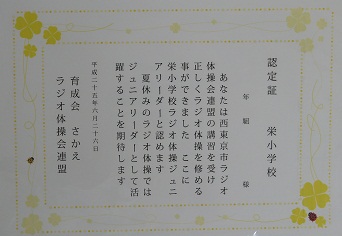 認定証　栄小学校
年　組　様
あなたは西東京市ラジオ
体操会連盟の講習を受け
正しくラジオ体操を修める
事ができました　ここに
栄小学校ラジオ体操ジュニ
アリーダーと認めます
夏休みのラジオ体操では
ジュニアリーダーとして活
躍することを期待します
平成二十五年六月二十六日
育成会　さかえ
ラジオ体操会連盟